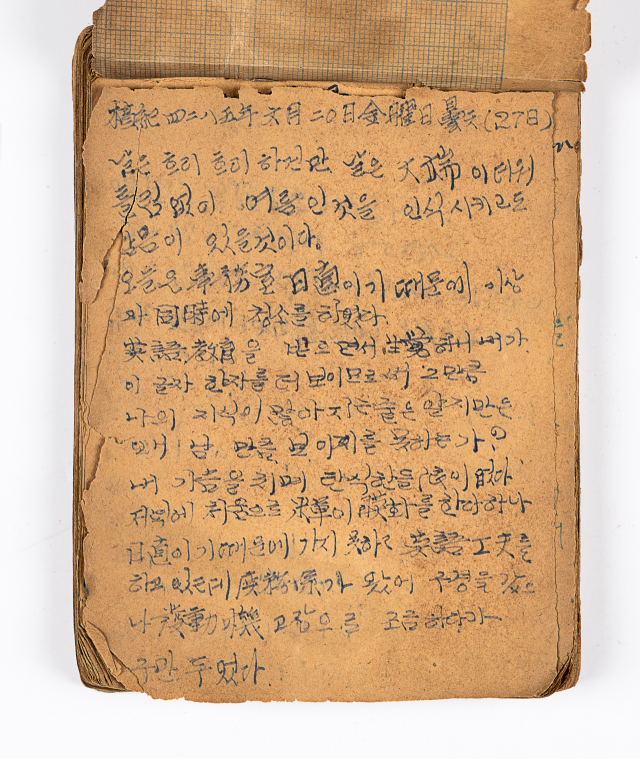 檀紀 四二八五年 六月 二0日 金曜日 曇天 (27日)
날은 흐리 흐리 하건만 날은 이 더워
틀림 없이 여름인 것을 인식 시키고도
남음이 있을것이다.
오늘은 事務室 日直이기 때문에 이상
과 同時에 청소를 하였다.
英語 敎育을 받으면서 하니 내가
이 글자 한자를 더 보이므로써 그만큼
나의 지식이 많아 지는줄은 알지만은
왜 남 만큼 보이지를 못하는가?
내 가슴을 치며 탄식한들 이 없다
저녁에 처음으로 이 映畵를 한다하나
日直이기때문에 가지 못하고 英語工夫를
하고 있는데 가 왔기에 구경을 갔으
나 發動機 고장으로 조금 하다가
구만 두었다.